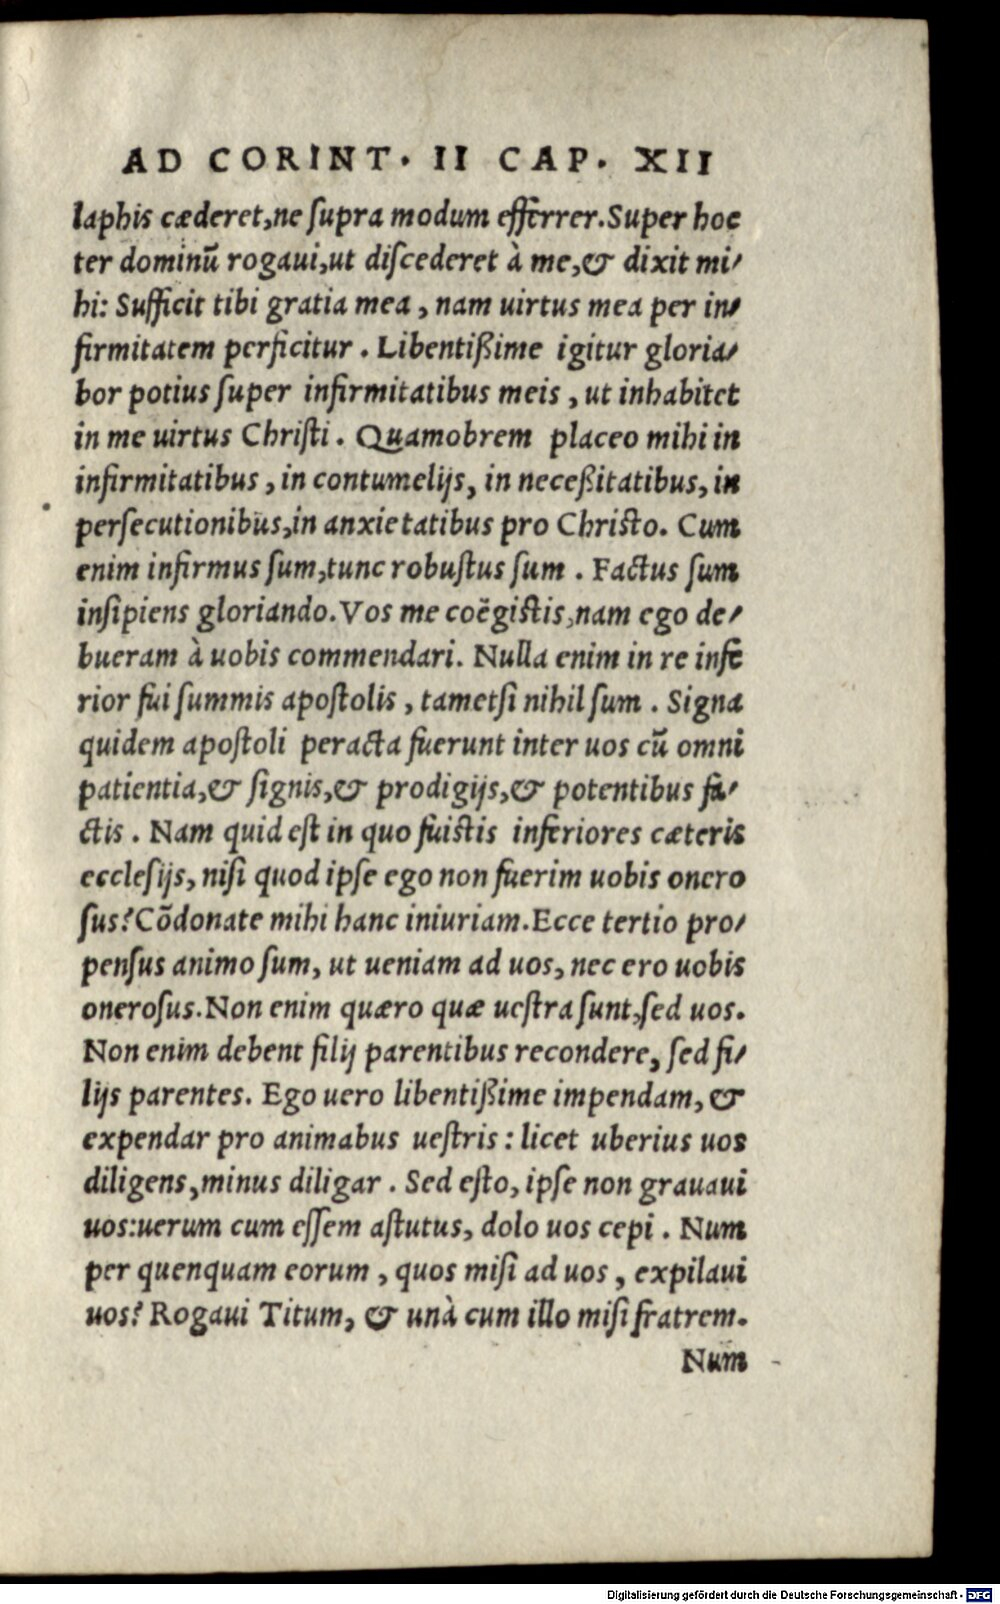 AD CORINT. II CAP. XII
laphis cæderet,ne ſupra modum efferrer.Super hoc
ter dominū rogaui,ut diſcederet à me,& dixit mi/
hi: Sufficit tibi gratia mea , nam uirtus mea per in/
firmitatem perficitur . Libentißime igitur gloria/
bor potius ſuper infirmitatibus meis , ut inhabitet
in me uirtus Chriſti . Quamobrem placeo mihi in
infirmitatibus , in contumelijs, in neceßitatibus, in
perſecutionibus,in anxietatibus pro Chriſto. Cum
enim infirmus ſum,tunc robuſtus ſum . Factus ſum
inſipiens gloriando.Vos me coëgiſtis,nam ego de/
bueram à uobis commendari. Nulla enim in re infe
rior fui ſummis apoſtolis , tametſi nihil ſum . Signa
quidem apoſtoli peracta fuerunt inter uos cū omni
patientia,& ſignis,& prodigijs,& potentibus fa/
ctis . Nam quid eſt in quo fuiſtis inferiores cæteris
eccleſijs, niſi quod ipſe ego non fuerim uobis onero
ſus? Cōdonate mihi hanc iniuriam.Ecce tertio pro/
penſus animo ſum, ut ueniam ad uos, nec ero uobis
oneroſus.Non enim quæro quæ ueſtra ſunt,ſed uos.
Non enim debent filij parentibus recondere, ſed fi/
lijs parentes. Ego uero libentißime impendam, &
expendar pro animabus ueſtris : licet uberius uos
diligens,minus diligar . Sed eſto, ipſe non grauaui
uos:uerum cum eſſem aſtutus, dolo uos cepi . Num
per quenquam eorum , quos miſi ad uos , expilaui
uos? Rogaui Titum, & unà cum illo miſi fratrem.
Num
Digitalisierung gefördert durch die Deutsche Forschungsgemeinschaft · DFG